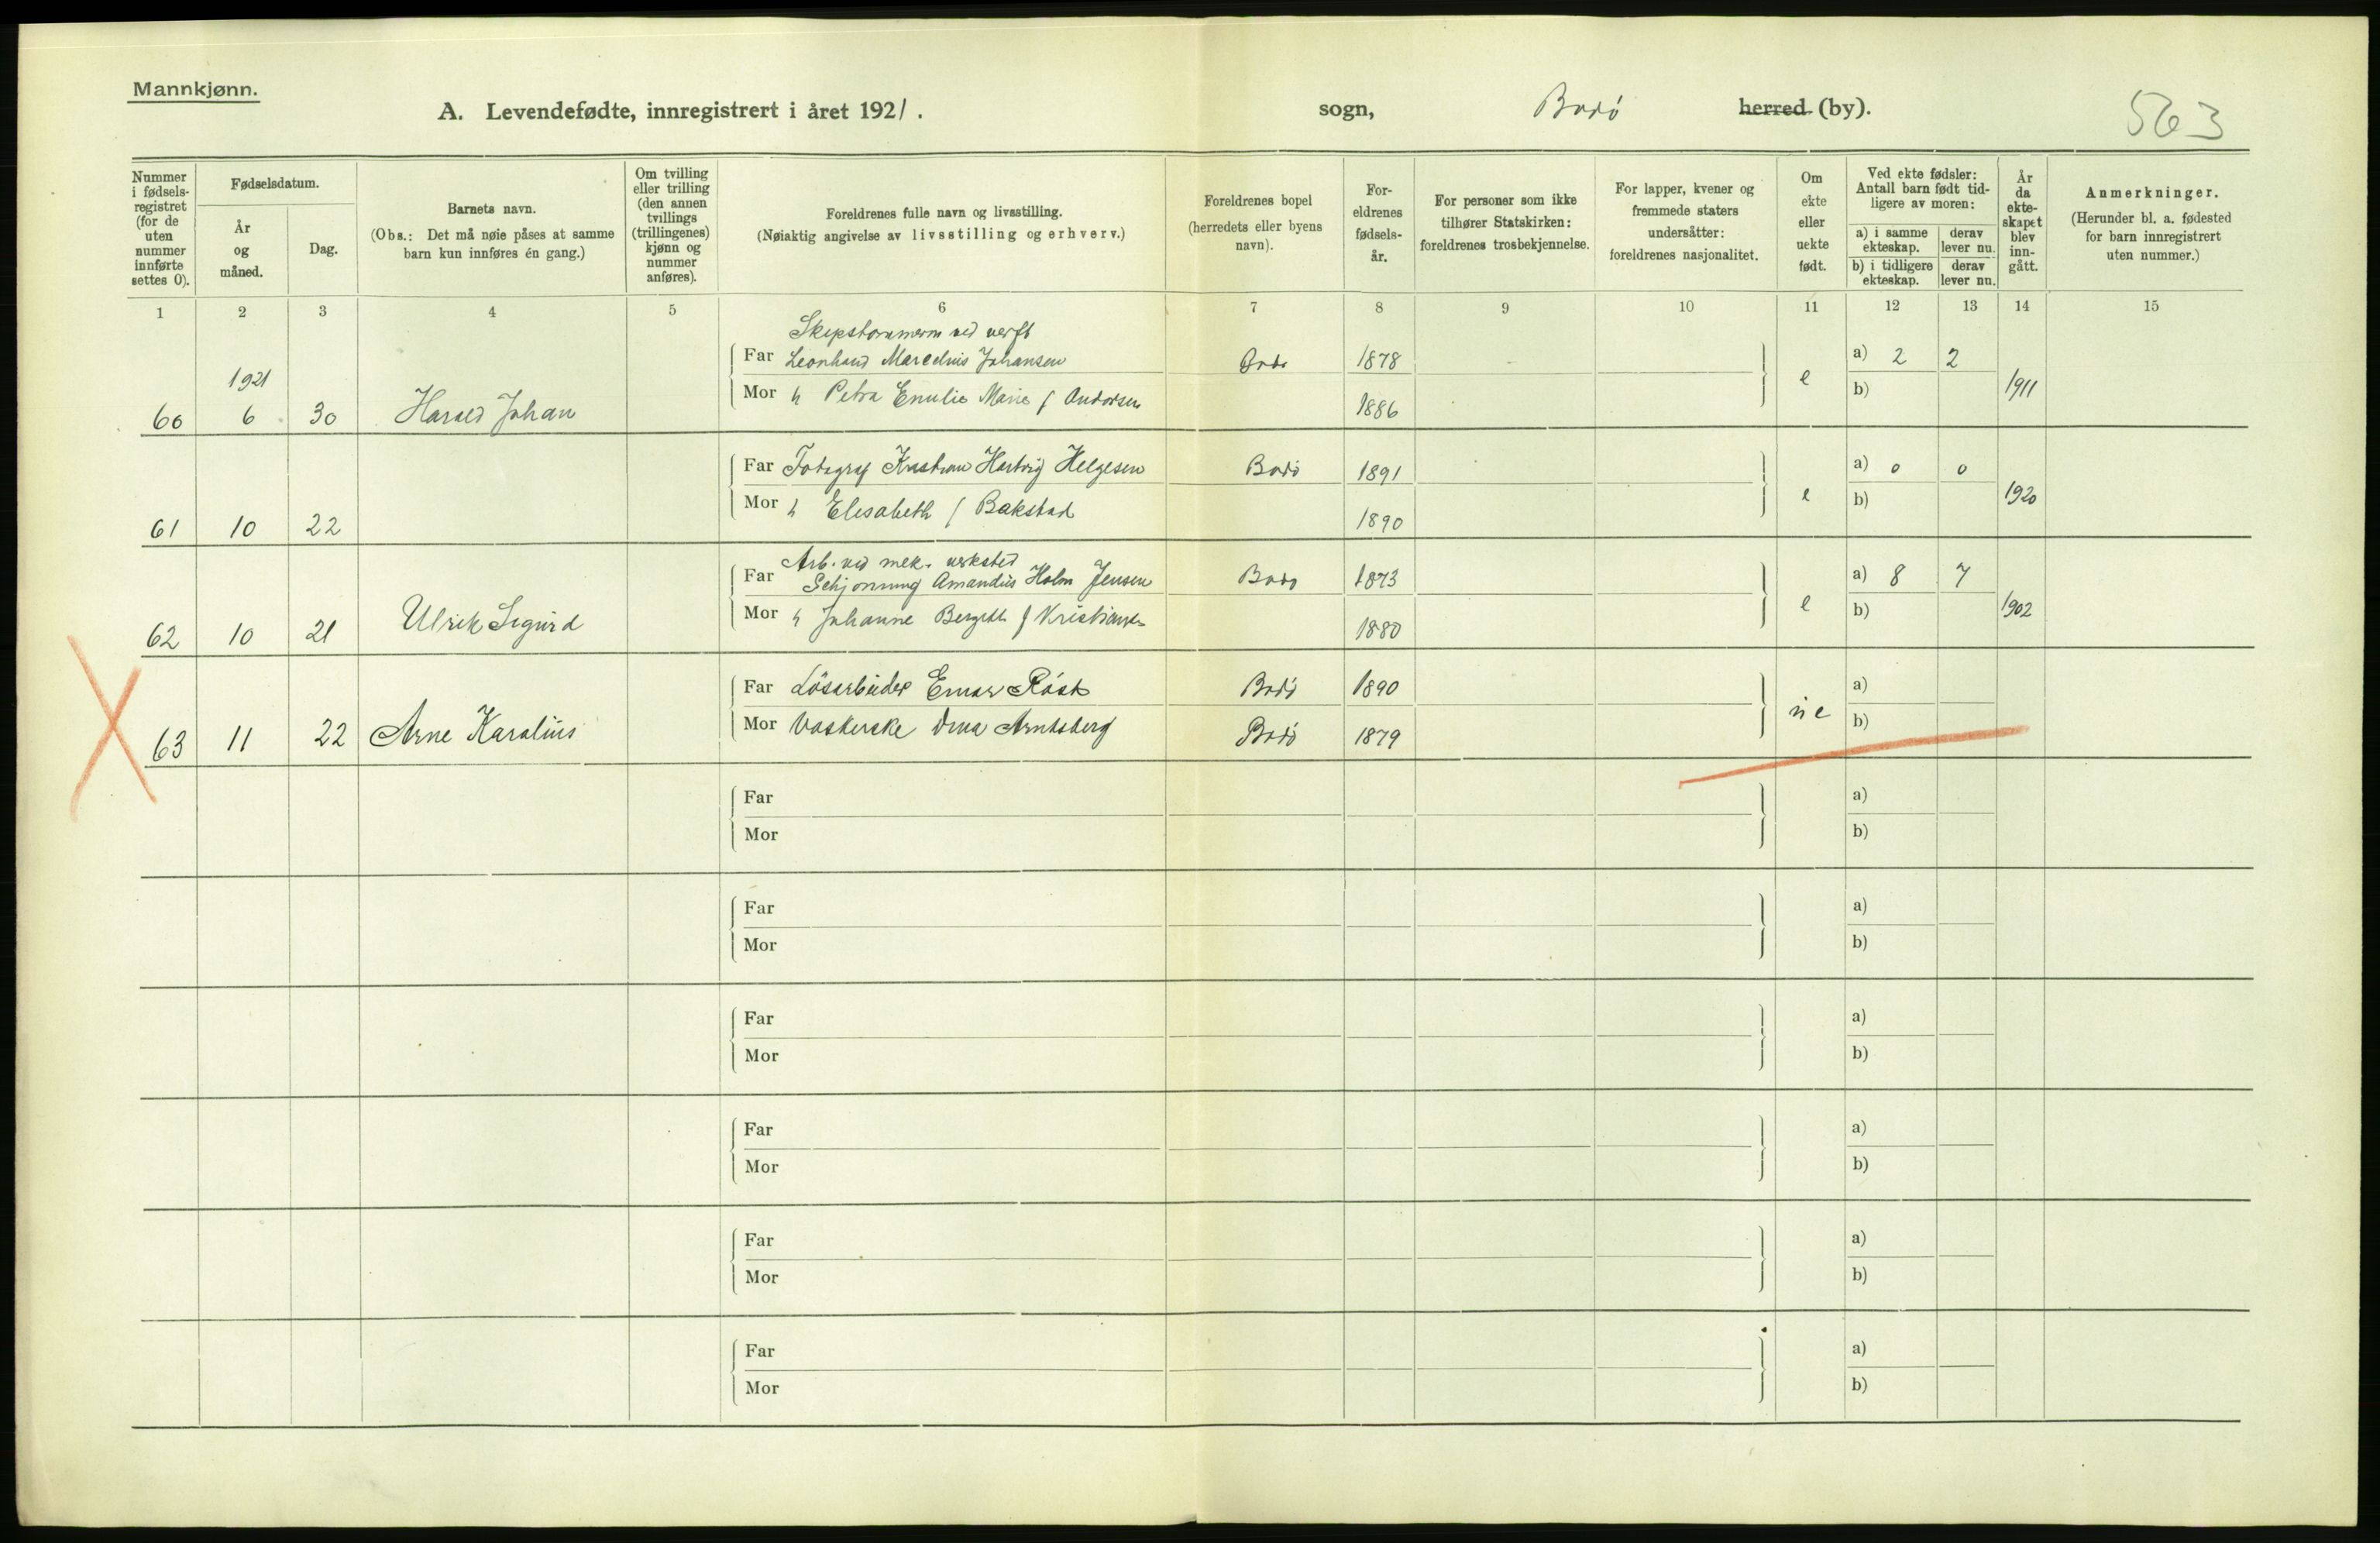 Mannkjønn.
A. Levendefødte, innregistrert i året 1921. sogn, Bodø herred (by). 563
Nummer i fødsels-registret (for de uten nummer innførte settes 0).
Fødselsdatum.
År og måned.
Dag.
Barnets navn.
(Obs.: Det må nøie påses at samme barn kun innføres én gang.)
Om tvilling eller trilling (den annen tvillings (trillingenes) kjønn og nummer anføres).
Foreldrenes fulle navn og livsstilling.
(Nøiaktig angivelse av livsstilling og erhverv.)
Foreldrenes bopel (herredets eller byens navn).
For-eldrenes fødsels-år.
For personer som ikke tilhører Statskirken: foreldrenes trosbekjennelse.
For lapper, kvener og fremmede staters undersåtter: foreldrenes nasjonalitet.
Om ekte eller uekte født.
Ved ekte fødsler: Antall barn født tid-ligere av moren:
a) i samme ekteskap. derav lever nu.
b) i tidligere ekteskap. derav lever nu.
År da ekte-skapet blev inn-gått.
Anmerkninger.
(Herunder bl. a. fødested for barn innregistrert uten nummer.)
1 2 3 4 5 6 7 8 9 10 11 12 13 14 15
Skipstømmerm ved verft
Far Leonhard Marcelius Johansen Bodø 1878 a) 2 2
1921
60 6 30 Harald Johan Mor h Petra Emilie Marie f Andorsen 1886 e b) 1911
Far Fotograf Kristian Hartvig Helgesen Bodø 1891 a) 0 0
61 10 22 Mor h Elisabeth f Bakstad 1890 e b) 1920
Arb. ved mek. verksted
Far Schjønning Amandus Holm Jensen Bodø 1873 a) 8 7
62 10 21 Ulrik Sigurd Mor h Johanne Bergitte f Kristiansen 1880 e b) 1902
Far Løsarbeider Einar Røst Bodø 1890 a)
63 11 22 Arne Karolius Mor Vaskerske Dina Arntsberg Bodø 1879 ue b)
Far a)
Mor b)
Far a)
Mor b)
Far a)
Mor b)
Far a)
Mor b)
Far a)
Mor b)
Far a)
Mor b)